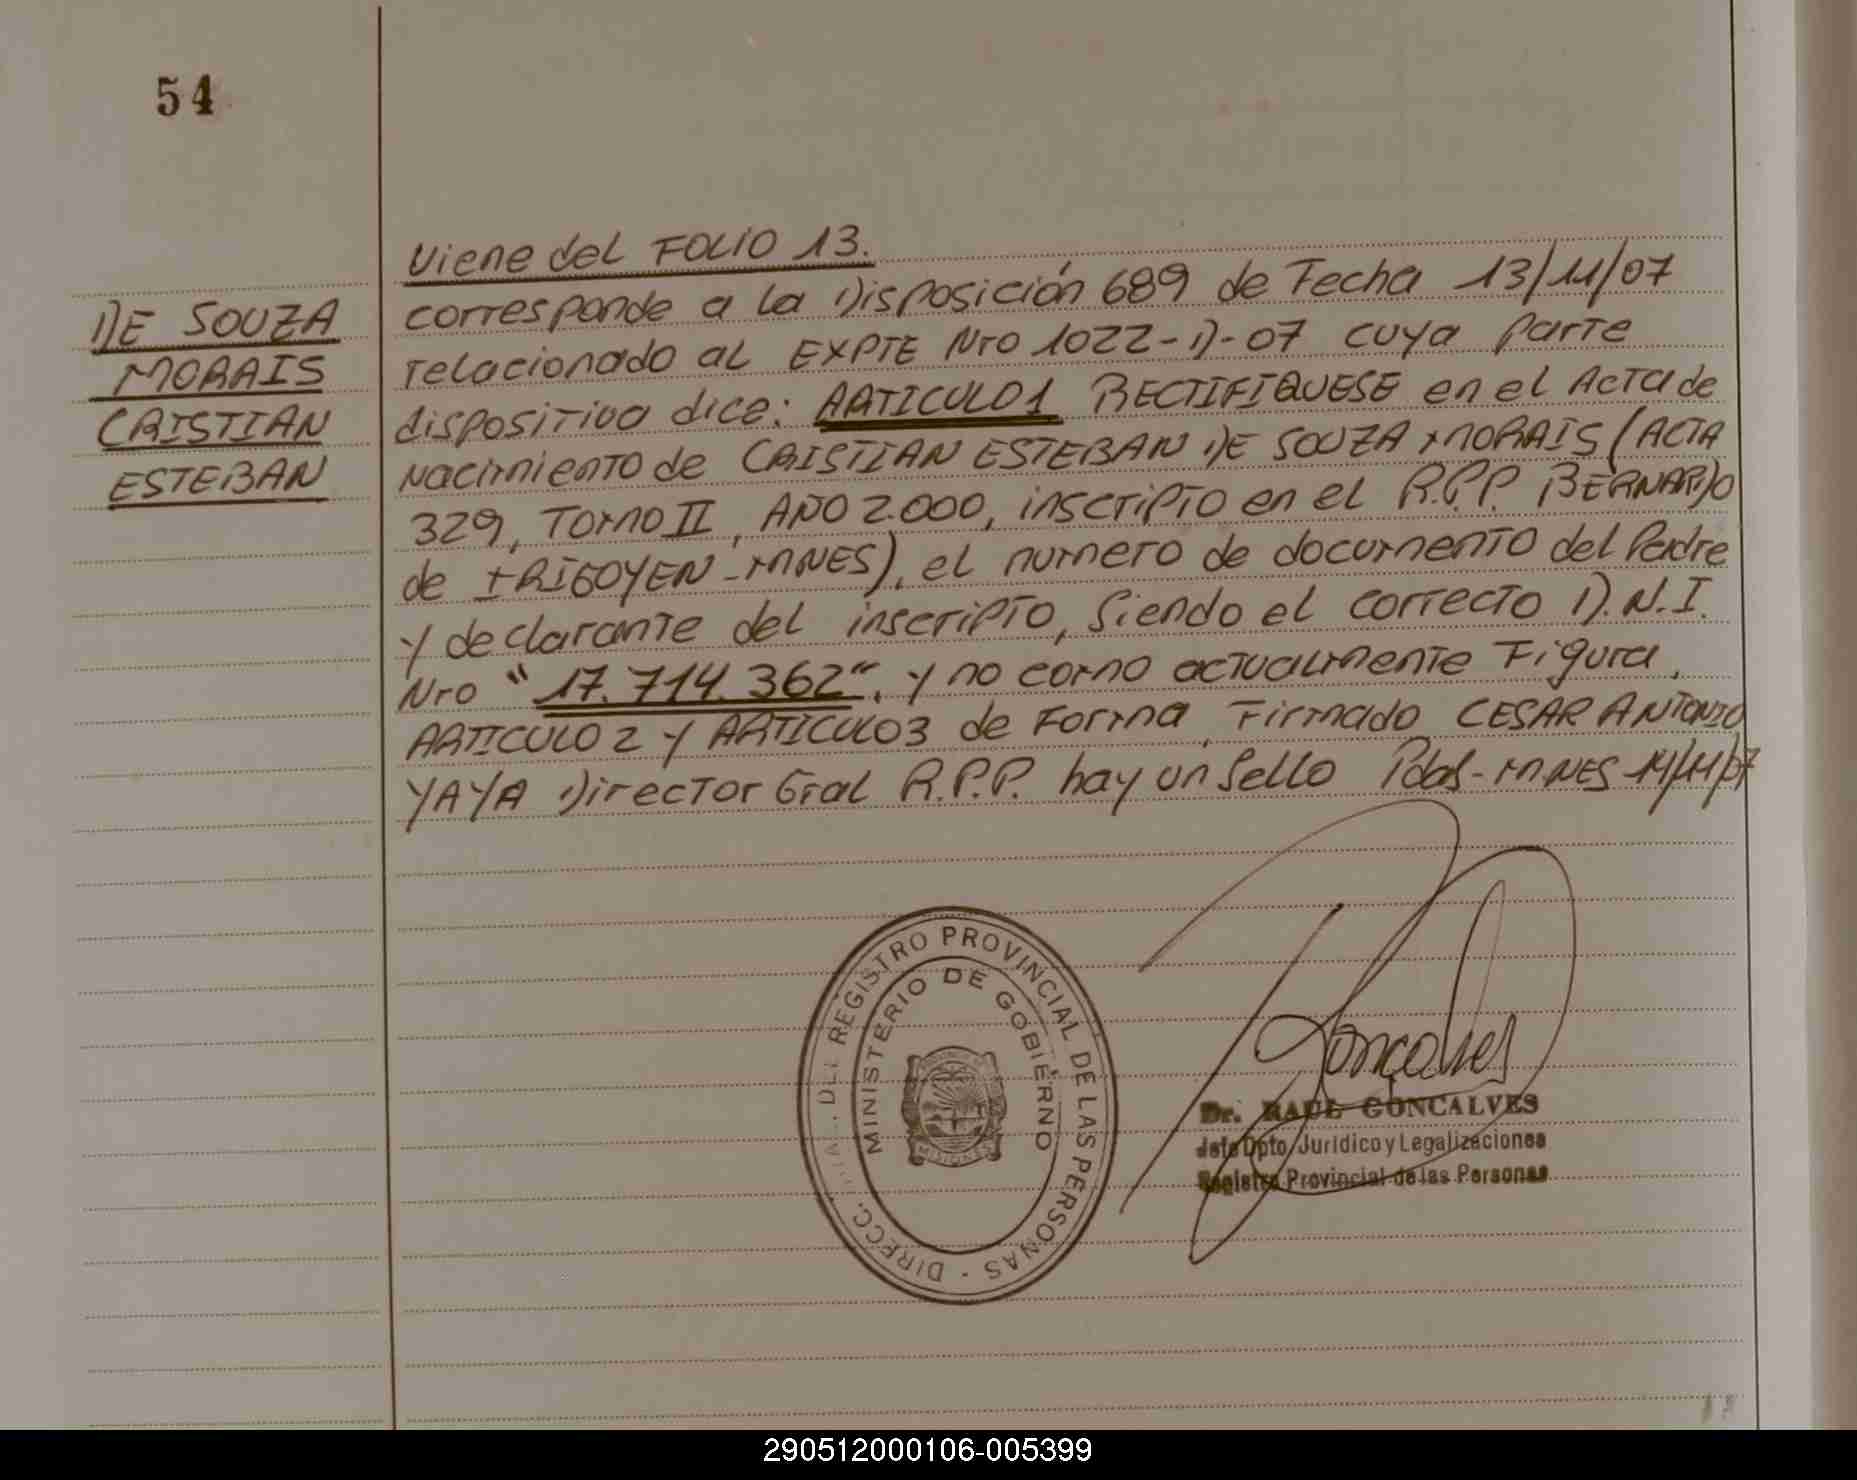 54
Viene del FOLIO 13.
corresponde a la Disposición 689 de Fecha 13/11/07
relacionado al EXPTE Nro 1022-D-07 cuya Parte
dispositiva dice: ARTICULO 1 RECTIFIQUESE en el Acta de
Nacimiento de CRISTIAN ESTEBAN DE SOUZA MORAIS (ACTA
329, Tomo II, AÑO 2.000, inscripto en el R.P.P. BERNARDO
de IRIGOYEN-MNES), el numero de documento del Padre
y declarante del inscripto, Siendo el correcto D.N.I.
Nro "17.714.362". y no como actualmente Figura.
ARTICULO 2 y ARTICULO 3 de Forma. Firmado CESAR ANTONIO
YAYA Director Gral R.P.P. hay un Sello Pdas-MNES 14/11/07
DE SOUZA
MORAIS
CRISTIAN
ESTEBAN
DEL REGISTRO PROVINCIAL DE LAS PERSONAS - DIRECC.
MINISTERIO DE GOBIERNO
MISIONES
Goncalves
Dr. RAUL GONCALVES
Jefe Dpto. Juridico y Legalizaciones
Registro Provincial de las Personas
290512000106-005399